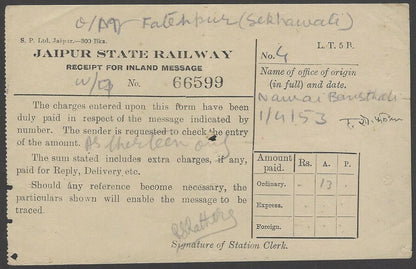 Fatehpur (Sekhawati)
S. P. Ltd. Jaipur.—300 Bks.
L. T. 5 R.
JAIPUR STATE RAILWAY
No. 4
RECEIPT FOR INLAND MESSAGE
No. 66599
Name of office of origin
(in full) and date.
1/4/53
The charges entered upon this form have been
duly paid in respect of the message indicated by
number. The sender is requested to check the entry
of the amount. As thirteen only
The sum stated includes extra charges, if any,
paid for Reply, Delivery etc.
Should any reference become necessary, the
particulars shown will enable the message to be
traced.
Signature of Station Clerk.
Amount paid. Rs. A. P.
Ordinary. - 13 -
Express.
Foreign.